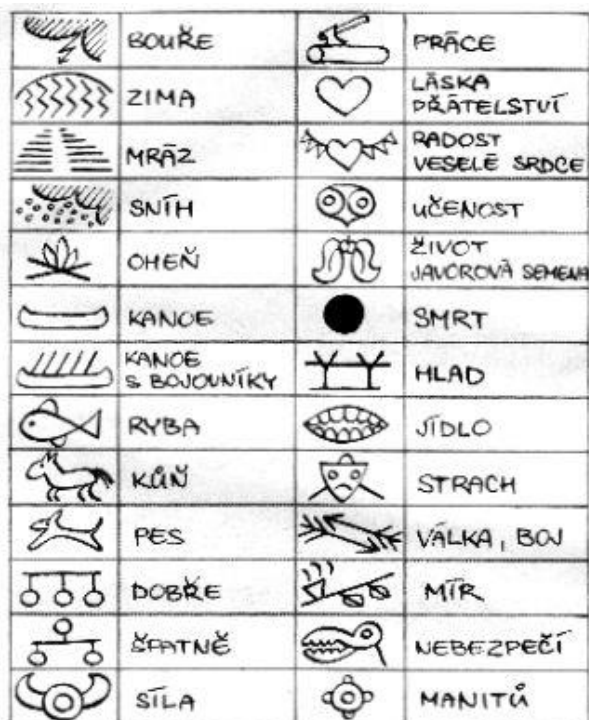 BOUŘE
PRÁCE
ZIMA
LÁSKA
PŘÁTELSTVÍ
MRÁZ
RADOST
VESELÉ SRDCE
SNÍH
UČENOST
OHEŇ
ŽIVOT
JAVOROVÁ SEMENA
KANOE
SMRT
KANOE
S BOJOUNÍKY
HLAD
RYBA
JÍDLO
KŮŇ
STRACH
PES
VÁLKA, BOJ
DOBŘE
MÍR
ŠPATNĚ
NEBEZPEČÍ
SÍLA
MANITŮ